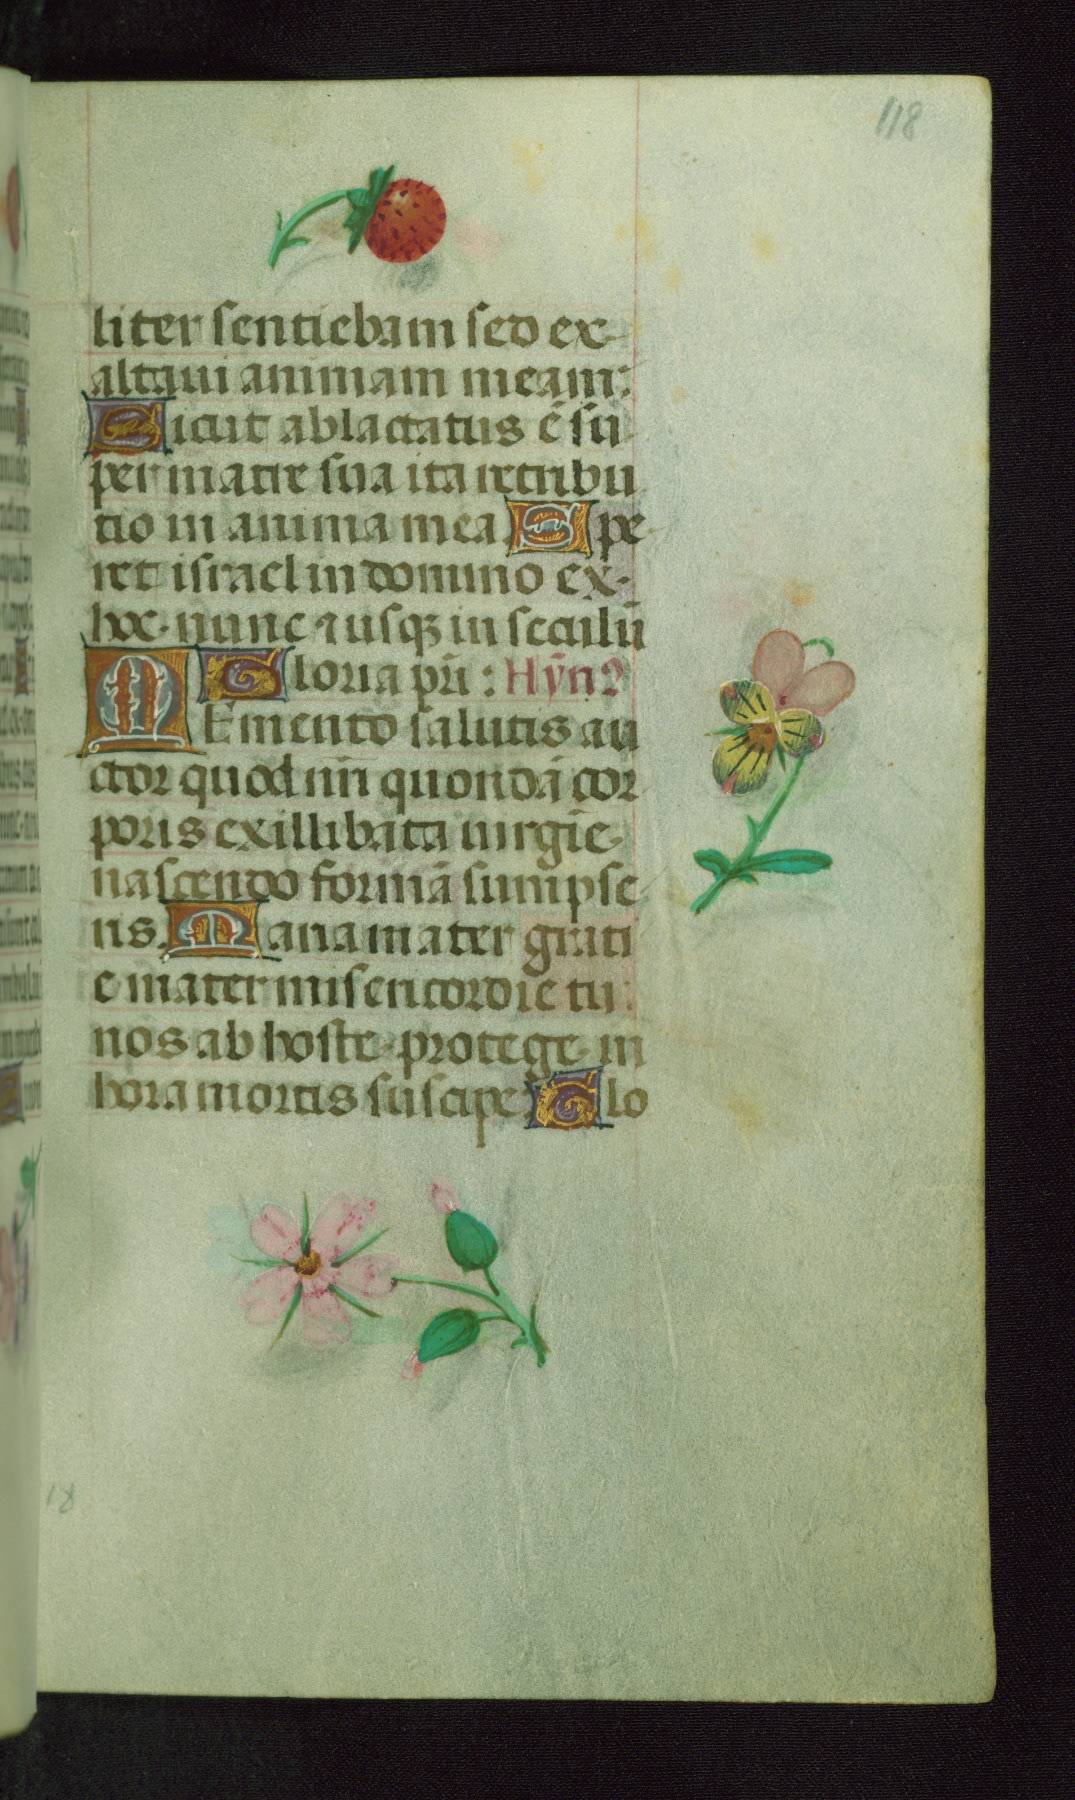 118
liter sentiebam sed ex-
altaui animam meam:
Sicut ablactatus ē su
per matre sua ita retribu
tio in anima mea Spe
ret israel in domino ex-
hoc nunc ⁊ usqꝫ in seculū
Gloria pr̄i : Hȳn9
MEmento salutis au
ctor quod nr̄i quondā cor
poris ex illibata uirgīe
nascendo formā sumpse
ris. Maria mater grati
e mater misericordie tu
nos ab hoste protege in
hora mortis suscipe Glo
18